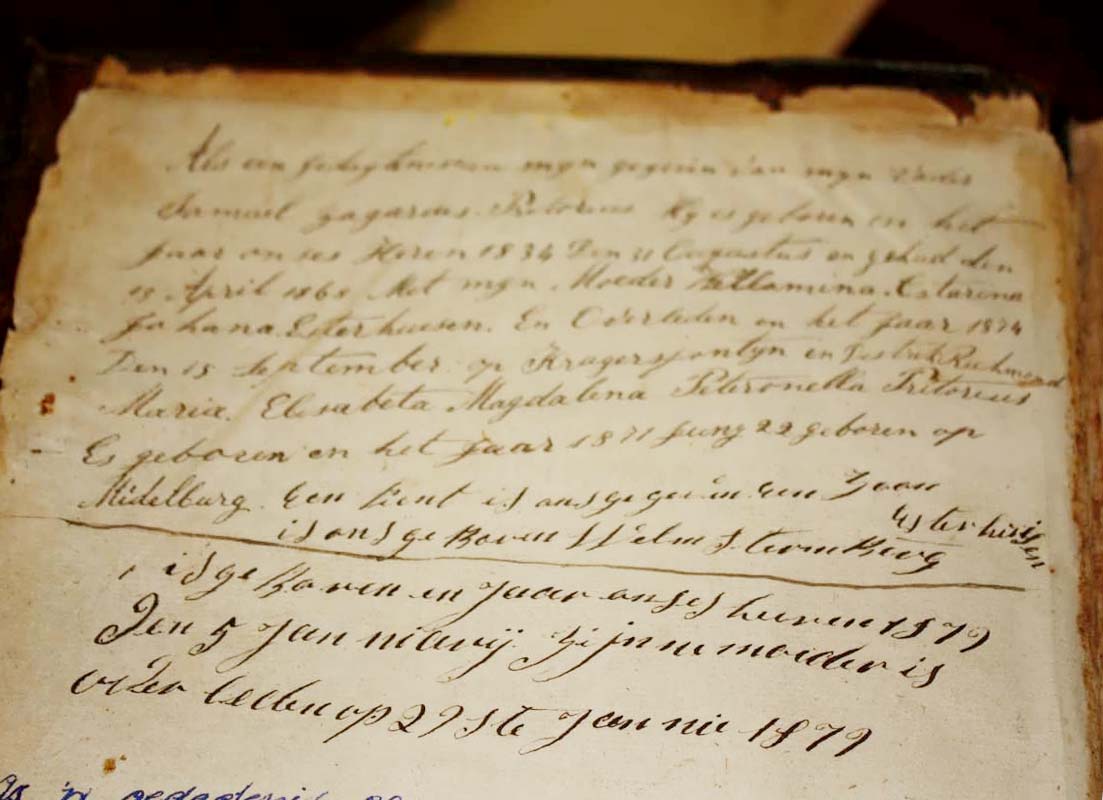 Als een gedegtenisvan mijn gegeven van mijn Vader
Samuel Zagarius Pretorius Hy is geboren in het
Jaar onses Heren 1834 Den 31 Augustus en gehud den
13 April 1868 Met mijn Moeder Willamina. Catarina
Johana. Esterhuisen. En Overleden en het Jaar 1874
Den 15 September op Kragersfontyn en Destrik Richmond
Maria. Elisabeta Magdalena Peteronella Pretorius
Es geboren en het Jaar 1871 Juny 22 geboren op
Midelburg. Een kent is ons gegeven. Een Zoon
is ons gebooren Welm Sternberg Esterhuisen
is geboren en Jaar onses heeren 1879
Den 5 Januiarij. Zijne moeder is
over leden op 29 Ste Jannie 1879